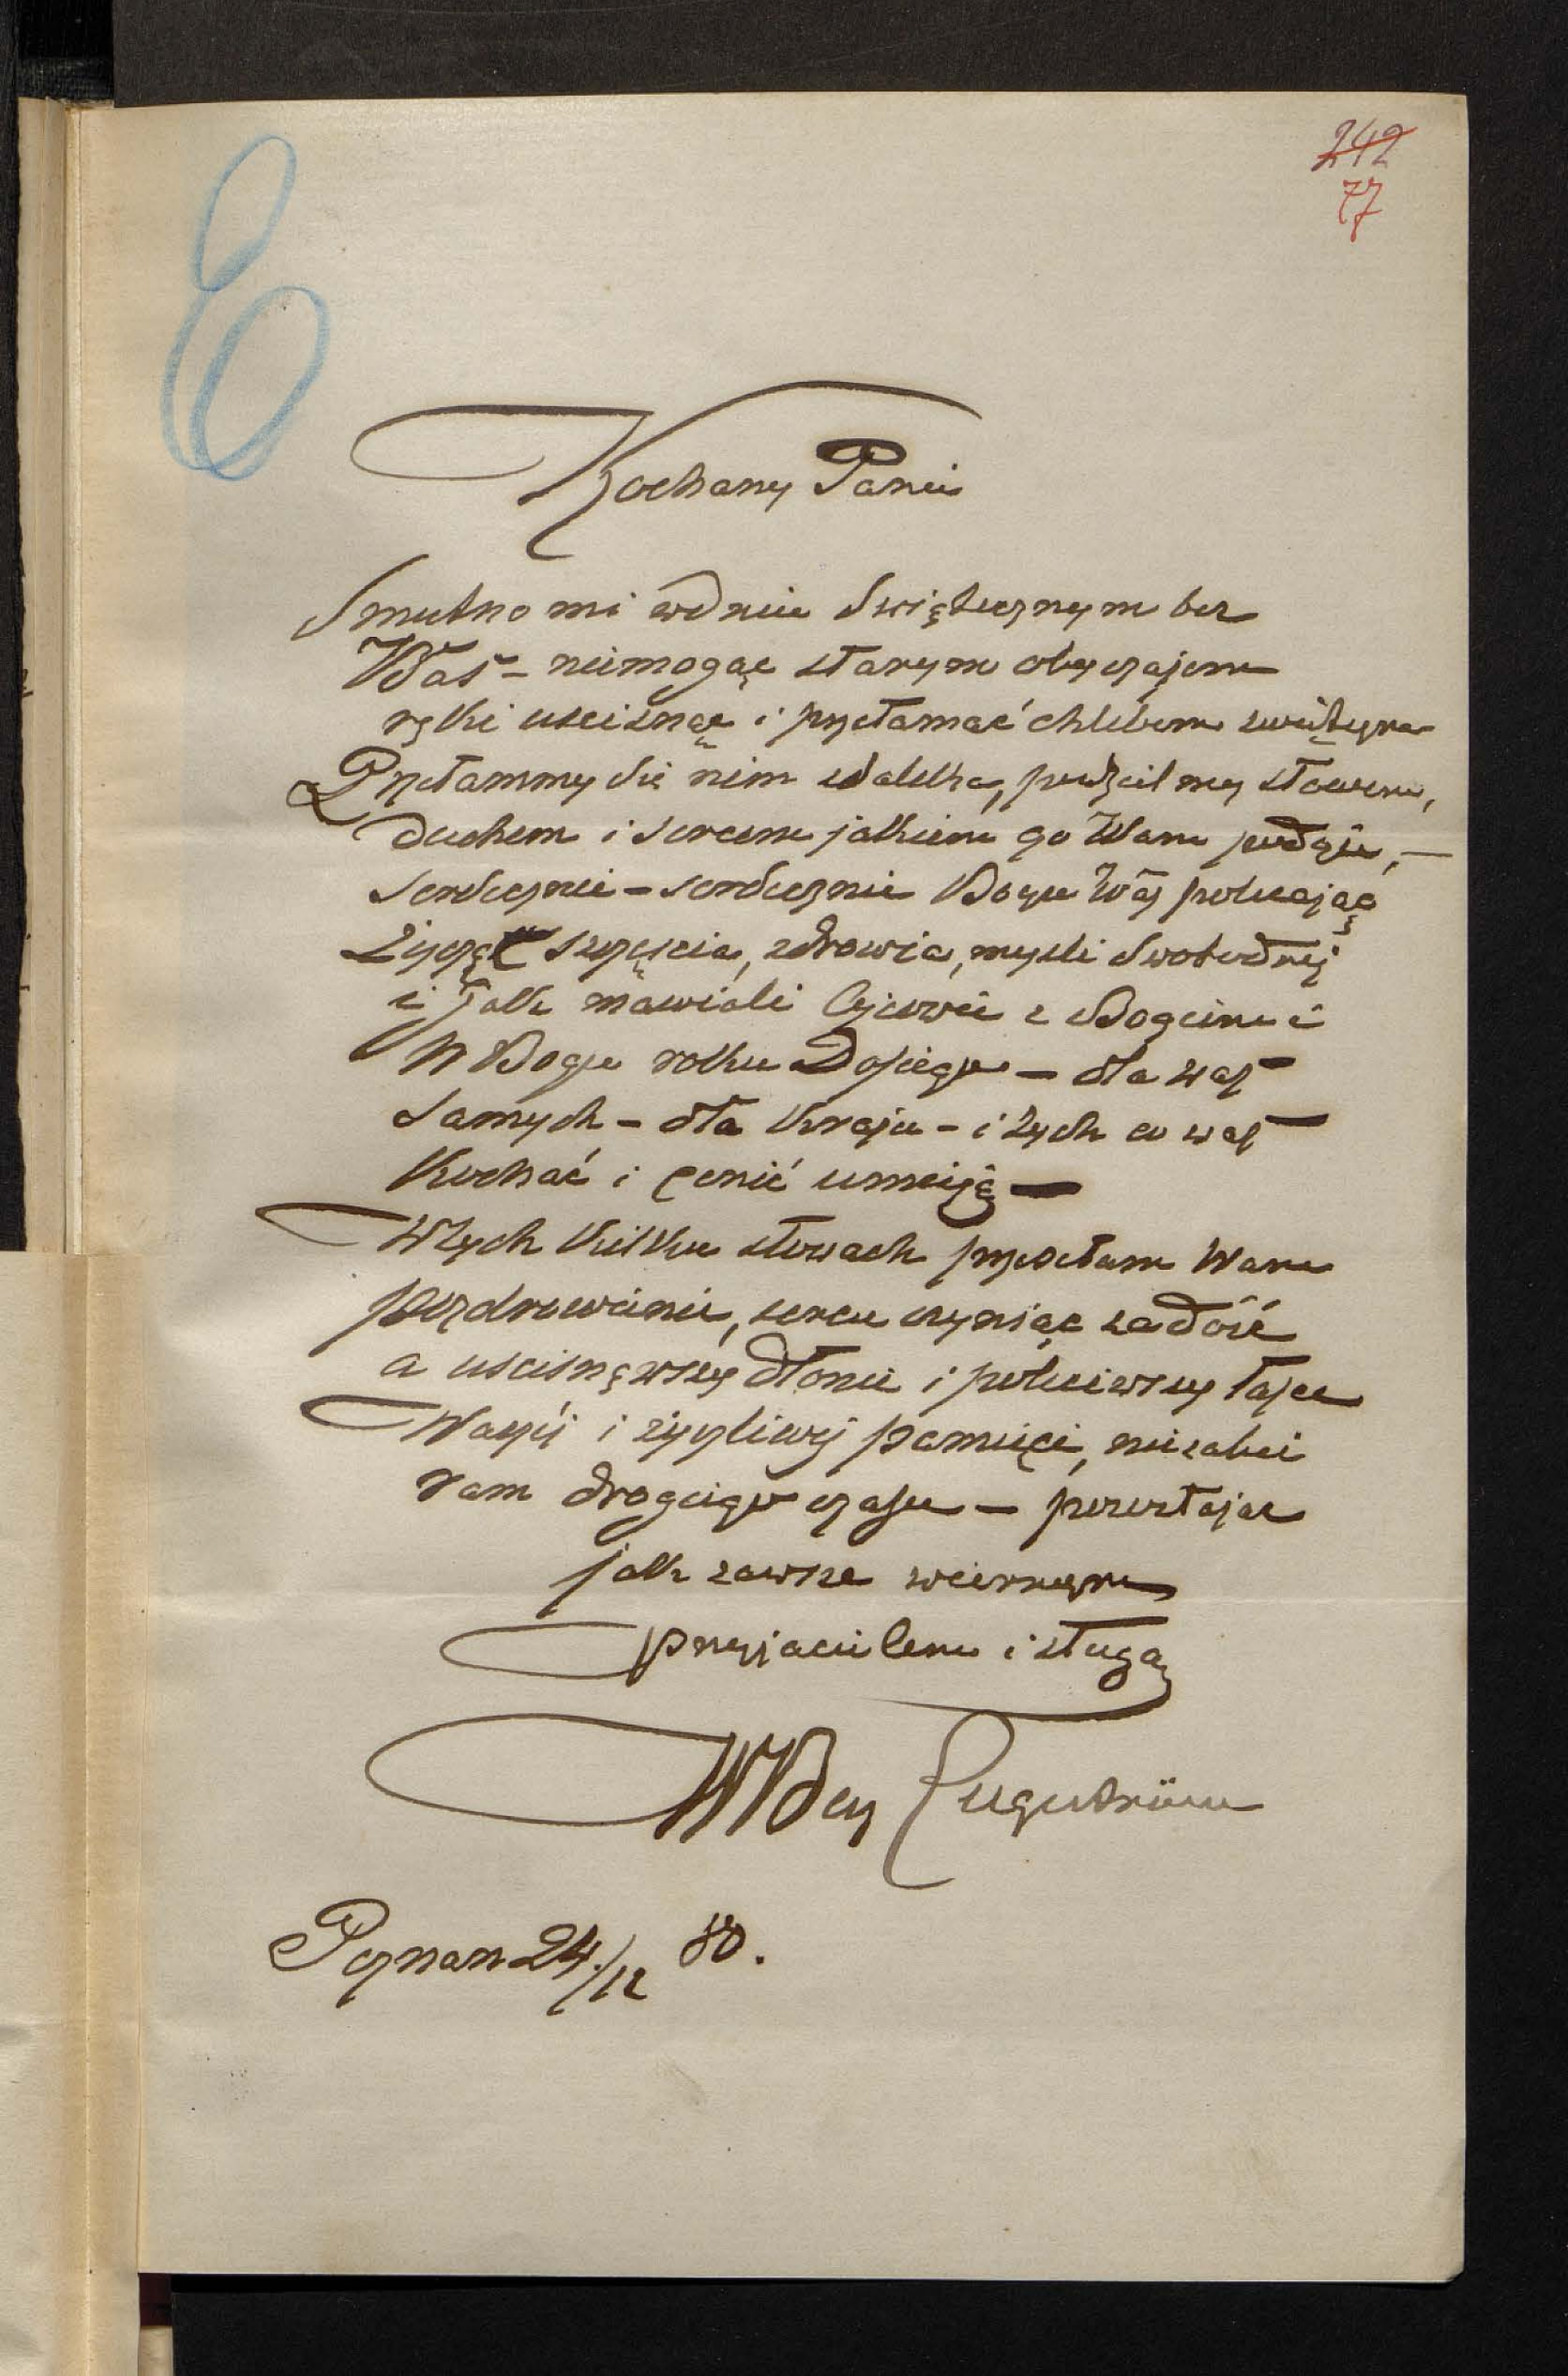 242
77
E
Kochany Panie
Smutno mi w dniu Swiątecznym bez
Was – niemogąc starym obyczajem
ręki uscisnąć i przełamać chlebem swiętym
Przełammy się nim zdaleka, podzielmy słowem,
duchem i sercem jakiem go Wam podaję, —
Serdecznie – serdecznie Bogu Was polecając
Życzę szczęscia, zdrowia, mysli Swobodnej
i Jak mawiali Ojcowie z Bogiem i
W Bogu roku Dosiego – dla was
Samych – dla Kraju – i tych co was
Kochać i cenić umieją —
W tych kilku słowach przesełam Wam
pozdrowienie, sercu czyniąc zadość
a uscisnąwszy dłonie i poleciwszy łasce
Waszéj i życzliwej pamięci, niezabie
ram drogiego czasu – pozostając
jak zawsze wiernym
przyjacielem i sługą
WBey
Poznan 24./12 80.